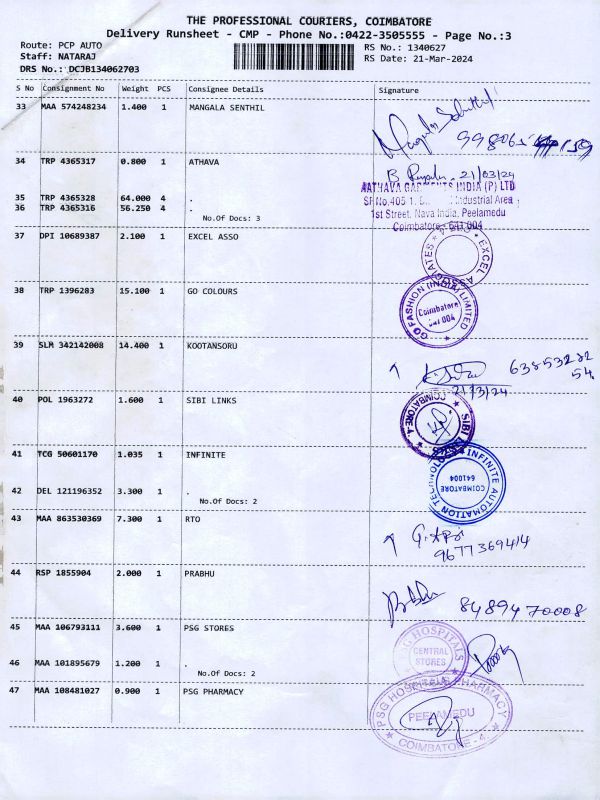 THE PROFESSIONAL COURIERS, COIMBATORE
Delivery Runsheet - CMP - Phone No.:0422-3505555 - Page No.:3
Route: PCP AUTO
Staff: NATARAJ
DRS No.: DCJB134062703
RS No.: 1340627
RS Date: 21-Mar-2024
S No Consignment No Weight PCS Consignee Details Signature
33 MAA 574248234 1.400 1 MANGALA SENTHIL
34 TRP 4365317 0.800 1 ATHAVA
21/03/24
AATHAVA GARMENTS INDIA (P) LTD
35 TRP 4365328 64.000 4 .
SF No.405 1, Industrial Area
36 TRP 4365316 56.250 4 .
No.Of Docs: 3
1st Street, Nava India, Peelamedu
Coimbatore - 641 004
37 DPI 10689387 2.100 1 EXCEL ASSO
EXCEL ASSOCIATES
38 TRP 1396283 15.100 1 GO COLOURS
GO FASHION (INDIA) LIMITED
Coimbatore
641 004
39 SLM 342142008 14.400 1 KOOTANSORU
21/3/24
40 POL 1963272 1.600 1 SIBI LINKS
SIBI LINKS COIMBATORE-4
41 TCG 50601170 1.035 1 INFINITE
INFINITE AUTOMATION TECHNOLOGY
COIMBATORE
641004
42 DEL 121196352 3.300 1 .
No.Of Docs: 2
43 MAA 863530369 7.300 1 RTO
9677369414
44 RSP 1855904 2.000 1 PRABHU
8489470008
45 MAA 106793111 3.600 1 PSG STORES
PSG HOSPITALS
CENTRAL
STORES
46 MAA 101895679 1.200 1 .
No.Of Docs: 2
47 MAA 108481027 0.900 1 PSG PHARMACY
PSG HOSPITALS PHARMACY
PEELAMEDU
COIMBATORE - 4